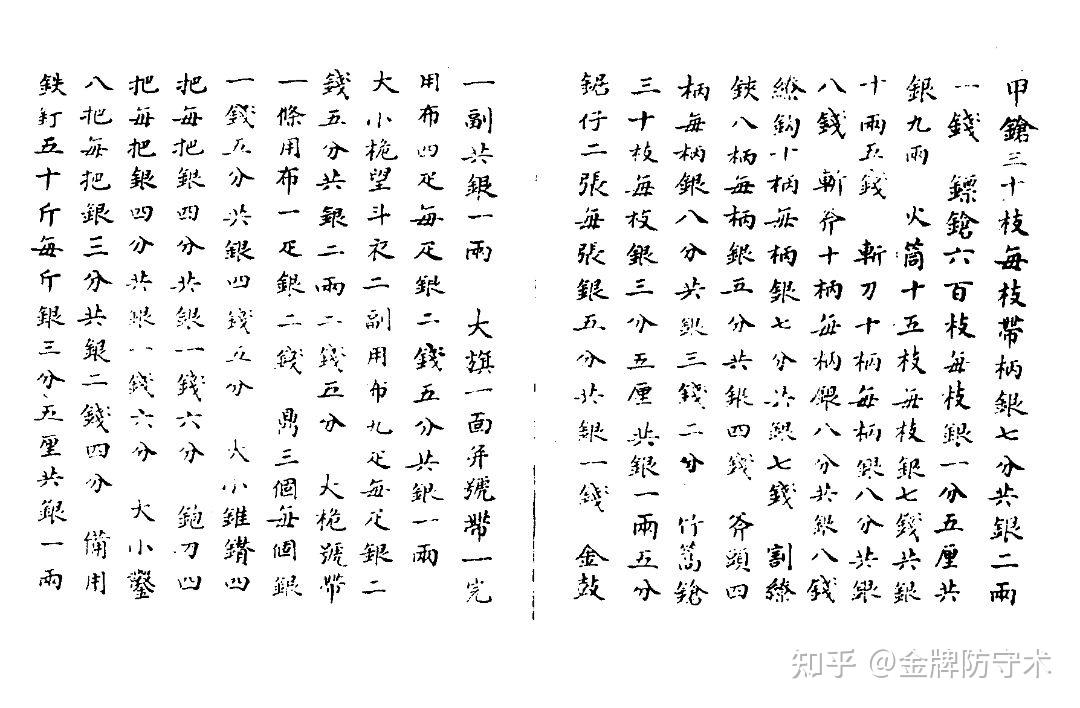 甲鎗三十枝每枝帶柄銀七分共銀二兩
一錢　鏢鎗六百枝每枝銀一分五厘共
銀九兩　火筒十五枝每枝銀七錢共銀
十兩五錢　斬刀十柄每柄銀八分共銀
八錢　斬斧十柄每柄銀八分共銀八錢
繚鈎十柄每柄銀七分共銀七錢　割繚
鋏八柄每柄銀五分共銀四錢　斧頭四
柄每柄銀八分共銀三錢二分　竹篙鎗
三十枝每枝銀三分五厘共銀一兩五分
鋸仔二張每張銀五分共銀一錢　金鼓
一副共銀一兩　大旗一面并號帶一完
用布四疋每疋銀二錢五分共銀一兩
大小桅望斗衣二副用布九疋每疋銀二
錢五分共銀二兩二錢五分　大桅號帶
一條用布一疋銀二錢　鼎三個每個銀
一錢五分共銀四錢五分　大小錐鑽四
把每把銀四分共銀一錢六分　鉋刀四
把每把銀四分共銀一錢六分　大小鑿
八把每把銀三分共銀二錢四分　備用
鉄釘五十斤每斤銀三分五厘共銀一兩
知乎 @金牌防守术